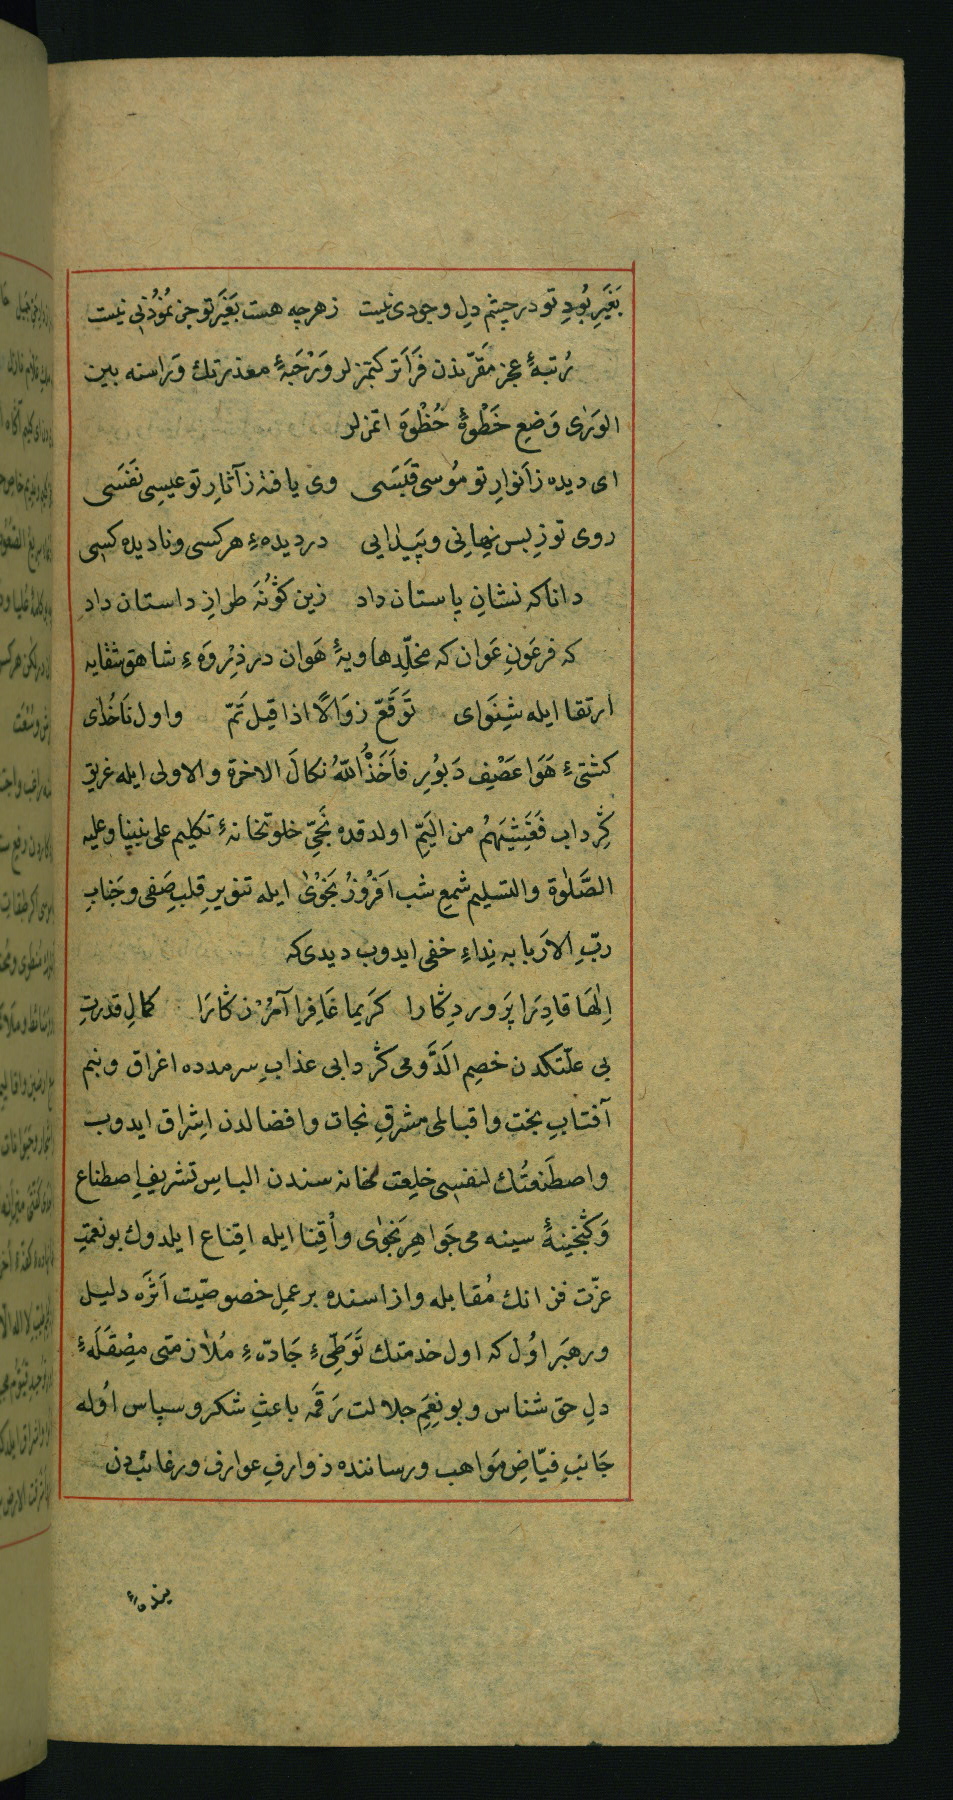 بَغَيرِ بُودِ تو در چشم دلِ وجودى نيست زهرچه هست بَغَيرِ تو جز نُمُودُنى نيست
رُتبهٔ عجز مَقرّندن فَرَاتر كتمزلر وَرْجَبهٔ معذرتك وَراسنه بين
الوَرٰى وَضعِ خَطْوهٔ حُظْوَه اتمزلر
اى ديده ز اَنوارِ تو مُوسى قَبَسَى وى يافته ز آثارِ تو عيسِى نَفَسَى
روى تو زِ بس نِهانى و پَيدايى در ديدهءِ هر كسى و ناديده كسى
دانا كه نشانِ باستان داد زين كَوُنَه طرازِ داستان داد
كه فرعَونِ عَوان كه مخلّدِ هاويهٔ هَوان در ذِرْوَهءِ شاهق شقايه
ارتقا ايله شِنَواى تَوَقَّعْ زوَالًا اذا قِيل تَمّ و اول نَاخُداى
كشتئِ هَوَا عَصْيِف دَبُورِ فاَخَذَُ اللّٰهُ نكالَ الاخرة والاولى ايله غريقِ
كِرداب فَغَشِيَهُم من اليَمِّ اولدقده نَجِىِّ خلوتخانهٔ تكليم على نبينا وعليه
الصَّلٰوة والتسليم شمعِ شب اَفرُوزُ نَجْوٰى ايله تنويرِ قلبِ صَفى و جَنابِ
ربِّ الاَربابه نِداءِ خفى ايدوب ديدى كه
اِلٰهَا قادِرَا پَروردِكارا كرَيما غَافِرا آمُرْزكارَا كمالِ قدرتِ
بى علّتكدن خصمِ اَلَدَّومى كردابى عذابِ سرمدده اغراق و بنم
آفتابِ بخت و اقبالمى مشرقِ نجات و افضالدن اِشراق ايدوب
واصطَنعتُك لنفسى خلِعت خانه سندن الباسِ تشريفِ اِصطناع
وَ كنجينهٔ سينه مى جَواهِرِ نَجْوٰى و اُقِنا ايله اقِناع ايلدوك بو نعمتِ
عزّت فزانك مُقابله و ازاسنده بر عملِ خصوصيّت اَثَرَه دليل
و رهبَر اوُل كه اول خدمتك تَوَطّىءِ جَادّهءِ مُلازمتى مِصْقَلَهءِ
دلِ حق شناس و بو نِعَمِ جلالت رَقَمَه باعثِ شكر و سپاس اوُله
جَانبِ فيّاضِ مَواهب و رساننده ذوارفِ عوارف و رغائبدن